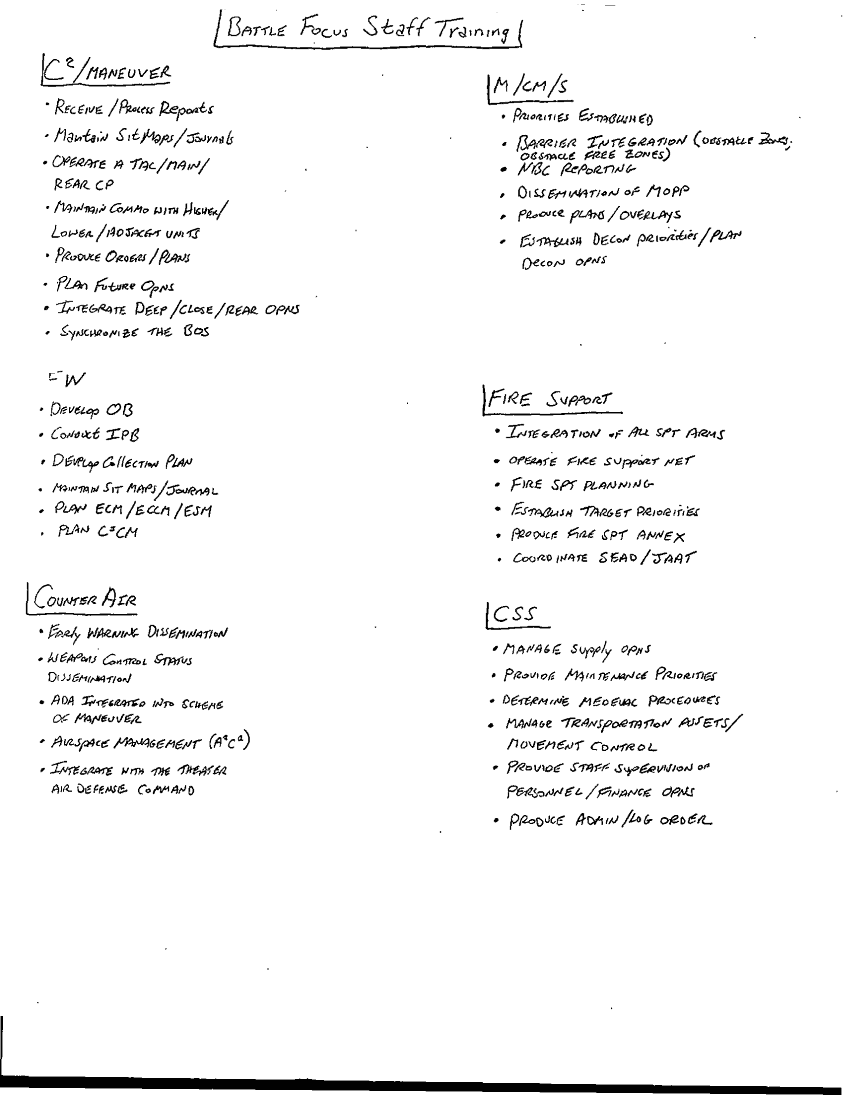 BATTLE FOCUS STAFF TRAINING
C²/MANEUVER
• RECEIVE/PROCESS REPORTS
• MAINTAIN SIT MAPS/JOURNALS
• OPERATE A TAC/MAIN/
REAR CP
• MAINTAIN COMMO WITH HIGHER/
LOWER/ADJACENT UNITS
• PRODUCE ORDERS/PLANS
• PLAN FUTURE OPNS
• INTEGRATE DEEP/CLOSE/REAR OPNS
• SYNCHRONIZE THE BOS
EW
• DEVELOP OB
• CONDUCT IPB
• DEVELOP COLLECTION PLAN
• MAINTAIN SIT MAPS/JOURNAL
• PLAN ECM/ECCM/ESM
• PLAN C³CM
COUNTER AIR
• EARLY WARNING DISSEMINATION
• WEAPONS CONTROL STATUS
DISSEMINATION
• ADA INTEGRATED INTO SCHEME
OF MANEUVER
• AIRSPACE MANAGEMENT (A²C²)
• INTEGRATE WITH THE THEATER
AIR DEFENSE COMMAND
M/CM/S
• PRIORITIES ESTABLISHED
• BARRIER INTEGRATION (OBSTACLE ZONES,
OBSTACLE FREE ZONES)
• NBC REPORTING
• DISSEMINATION OF MOPP
• PRODUCE PLANS/OVERLAYS
• ESTABLISH DECON PRIORITIES/PLAN
DECON OPNS
FIRE SUPPORT
• INTEGRATION OF ALL SPT ARMS
• OPERATE FIRE SUPPORT NET
• FIRE SPT PLANNING
• ESTABLISH TARGET PRIORITIES
• PRODUCE FIRE SPT ANNEX
• COORDINATE SEAD/JAAT
CSS
• MANAGE SUPPLY OPNS
• PROVIDE MAINTENANCE PRIORITIES
• DETERMINE MEDEVAC PROCEDURES
• MANAGE TRANSPORTATION ASSETS/
MOVEMENT CONTROL
• PROVIDE STAFF SUPERVISION OF
PERSONNEL/FINANCE OPNS
• PRODUCE ADMIN/LOG ORDER